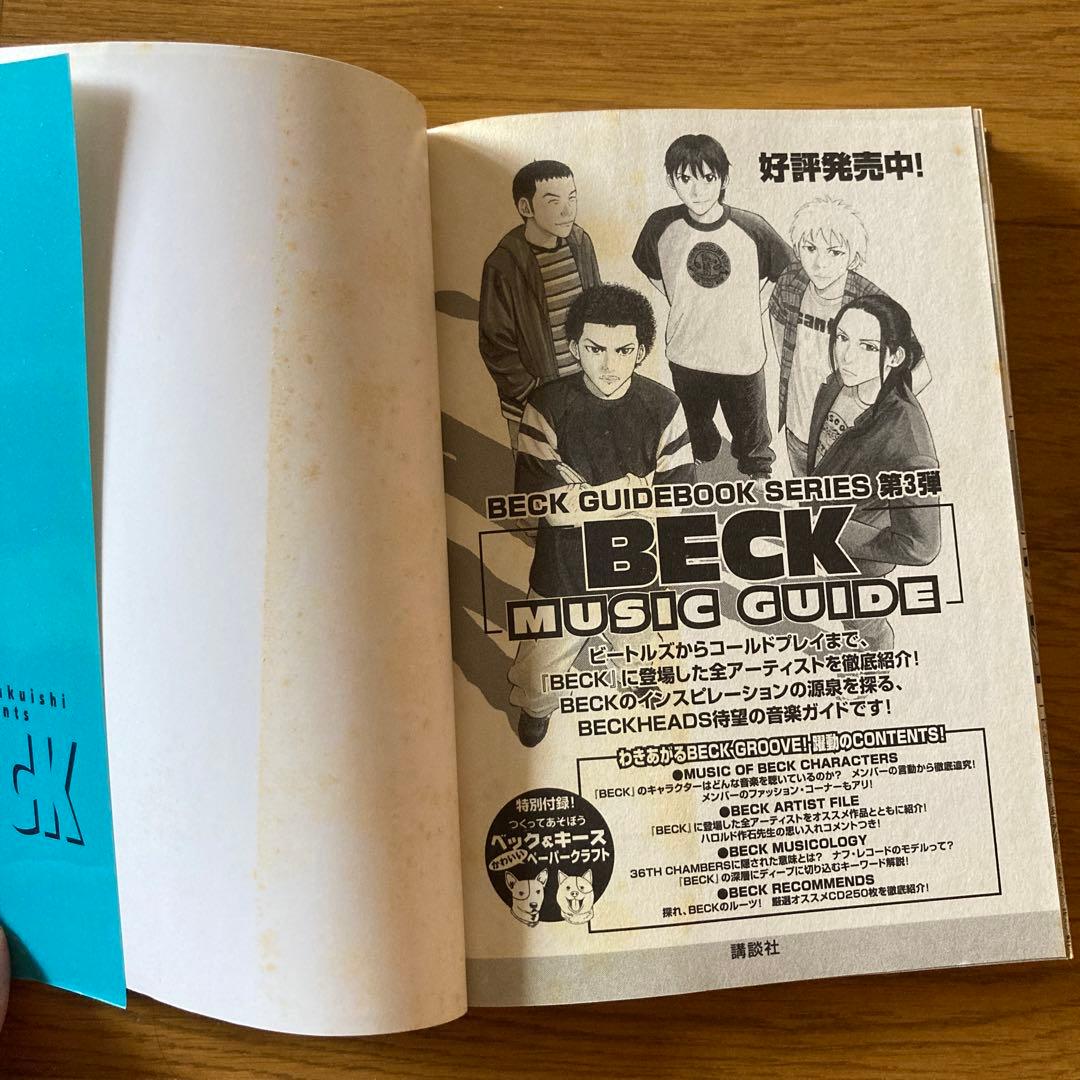 好評発売中!
BECK GUIDEBOOK SERIES 第3弾
BECK
MUSIC GUIDE
ビートルズからコールドプレイまで、
『BECK』に登場した全アーティストを徹底紹介!
BECKのインスピレーションの源泉を探る、
BECKHEADS待望の音楽ガイドです!
わきあがるBECK GROOVE! 躍動のCONTENTS!
●MUSIC OF BECK CHARACTERS
『BECK』のキャラクターはどんな音楽を聴いているのか? メンバーの言動から徹底追究!
メンバーのファッション・コーナーもアリ!
●BECK ARTIST FILE
『BECK』に登場した全アーティストをオススメ作品とともに紹介!
ハロルド作石先生の思い入れコメントつき!
●BECK MUSICOLOGY
36TH CHAMBERSに隠された意味とは? ナフ・レコードのモデルって?
『BECK』の深層にディープに切り込むキーワード解説!
●BECK RECOMMENDS
探れ、BECKのルーツ! 厳選オススメCD250枚を徹底紹介!
特別付録!
つくってあそぼう
ベック&キース
かわいいペーパークラフト
講談社
kuishi
nts
CK